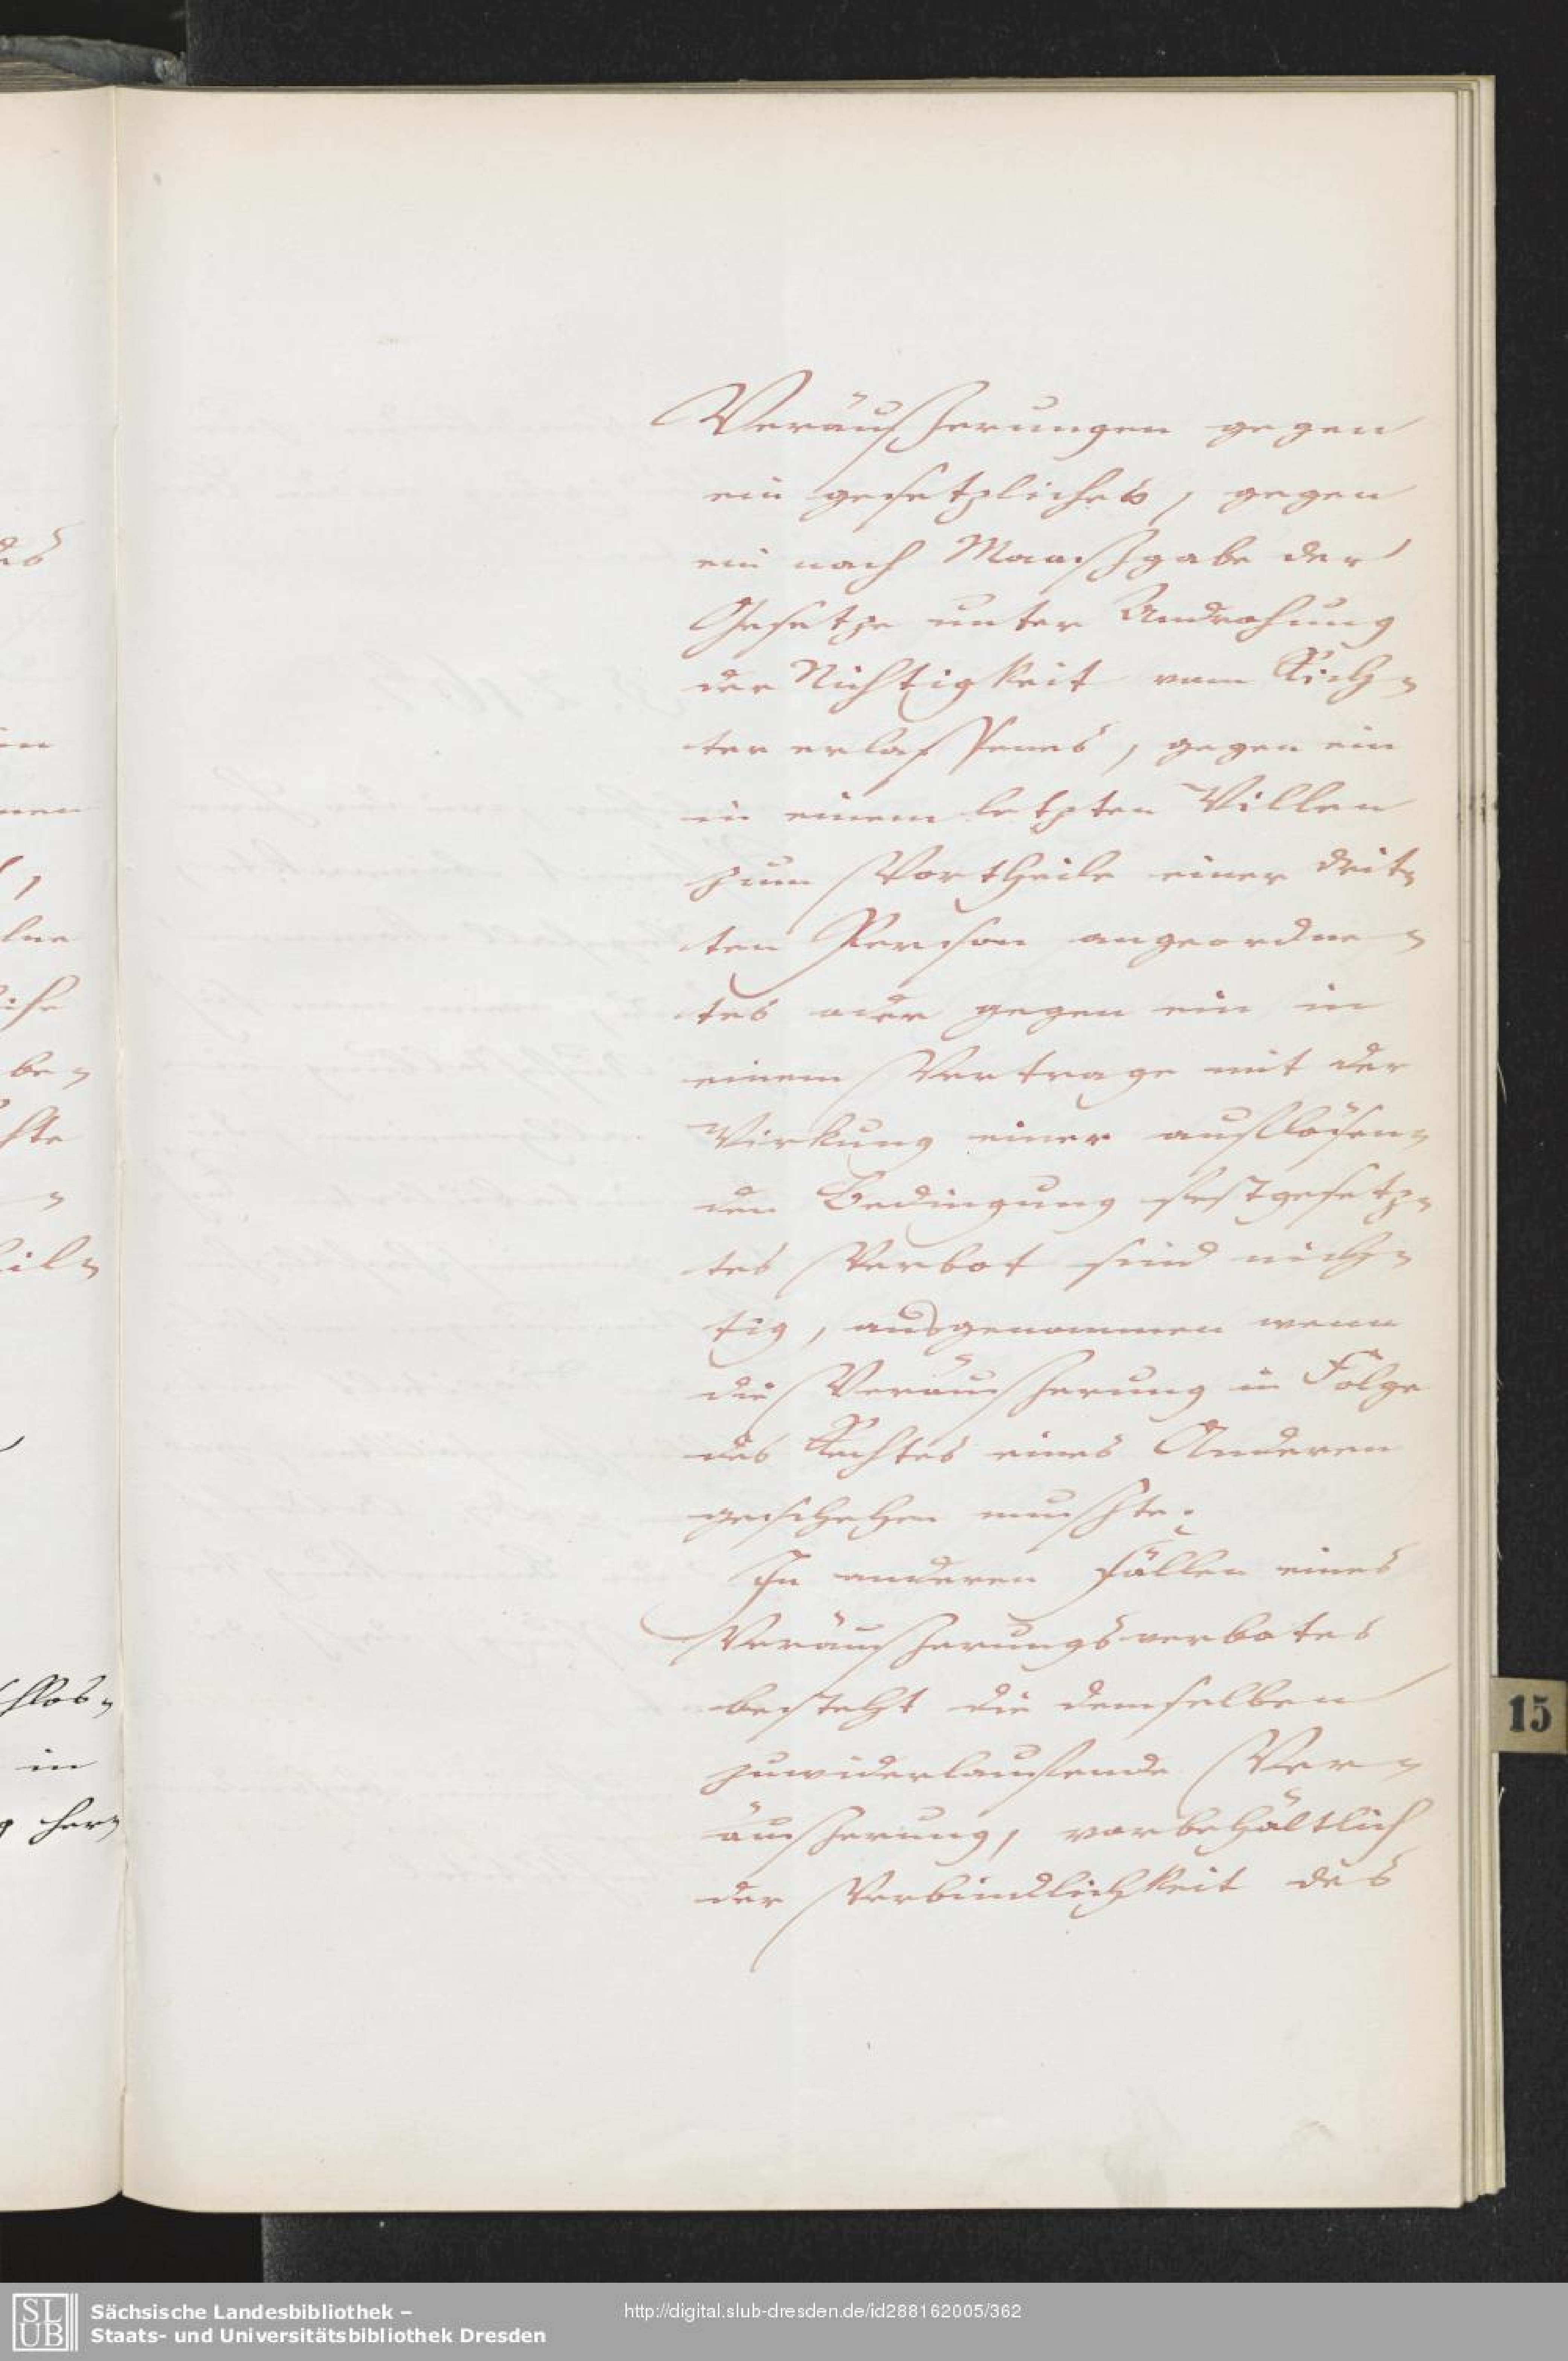 Veräußerungen gegen
ein gesetzliches, gegen
ein nach Maaßgabe der
Gesetze unter Androhung
der Nichtigkeit vom Rich-
ter erlassenes, gegen ein
in einem letzten Willen
zum Vortheile einer drit-
ten Person angeordne-
tes oder gegen ein in
einem Vertrage mit der
Wirkung einer auflösen-
den Bedingung festgesetz-
tes Verbot sind nich-
tig, ausgenommen wenn
die Veräußerung in Folge
des Rechtes eines Anderen
geschehen mußte.
In anderen Fällen eines
Veräußerungsverbotes
besteht die demselben
zuwiderlaufende Ver-
äußerung, vorbehältlich
der Verbindlichkeit des
15
SLUB
Sächsische Landesbibliothek –
Staats- und Universitätsbibliothek Dresden
http://digital.slub-dresden.de/id288162005/362